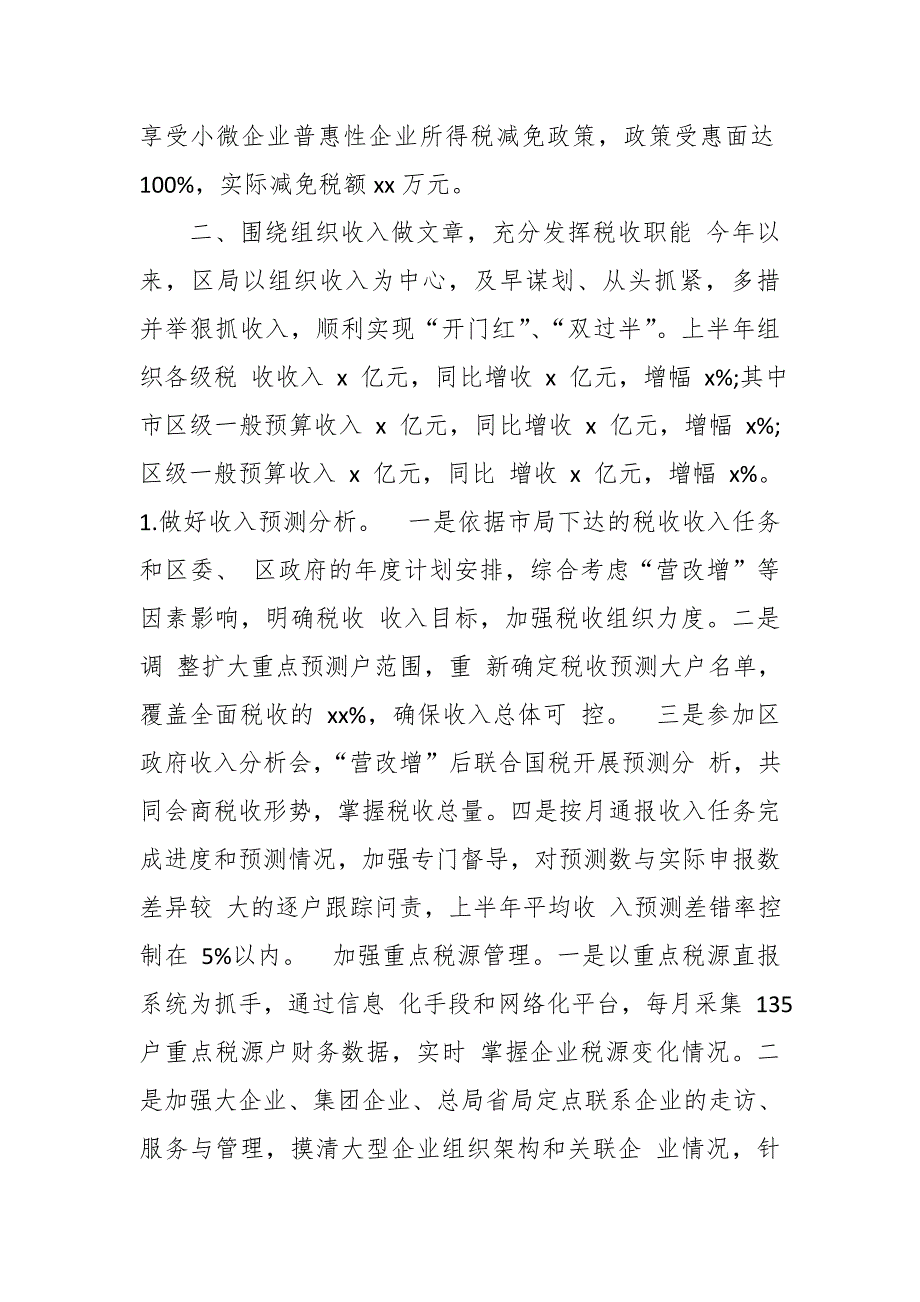 享受小微企业普惠性企业所得税减免政策，政策受惠面达
100%，实际减免税额 xx 万元。
二、围绕组织收入做文章，充分发挥税收职能 今年以
来，区局以组织收入为中心，及早谋划、从头抓紧，多措
并举狠抓收入，顺利实现“开门红”、“双过半”。上半年组
织各级税 收收入 x 亿元，同比增收 x 亿元，增幅 x%;其中
市区级一般预算收入 x 亿元，同比增收 x 亿元，增幅 x%;
区级一般预算收入 x 亿元，同比 增收 x 亿元，增幅 x%。
1.做好收入预测分析。 一是依据市局下达的税收收入任务
和区委、 区政府的年度计划安排，综合考虑“营改增”等
因素影响，明确税收 收入目标，加强税收组织力度。二是
调 整扩大重点预测户范围，重 新确定税收预测大户名单，
覆盖全面税收的 xx%，确保收入总体可 控。 三是参加区
政府收入分析会，“营改增”后联合国税开展预测分 析，共
同会商税收形势，掌握税收总量。四是按月通报收入任务完
成进度和预测情况，加强专门督导，对预测数与实际申报数
差异较 大的逐户跟踪问责，上半年平均收 入预测差错率控
制在 5%以内。 加强重点税源管理。一是以重点税源直报
系统为抓手，通过信息 化手段和网络化平台，每月采集 135
户重点税源户财务数据，实时 掌握企业税源变化情况。二
是加强大企业、集团企业、总局省局定点联系企业的走访、
服务与管理，摸清大型企业组织架构和关联企 业情况，针